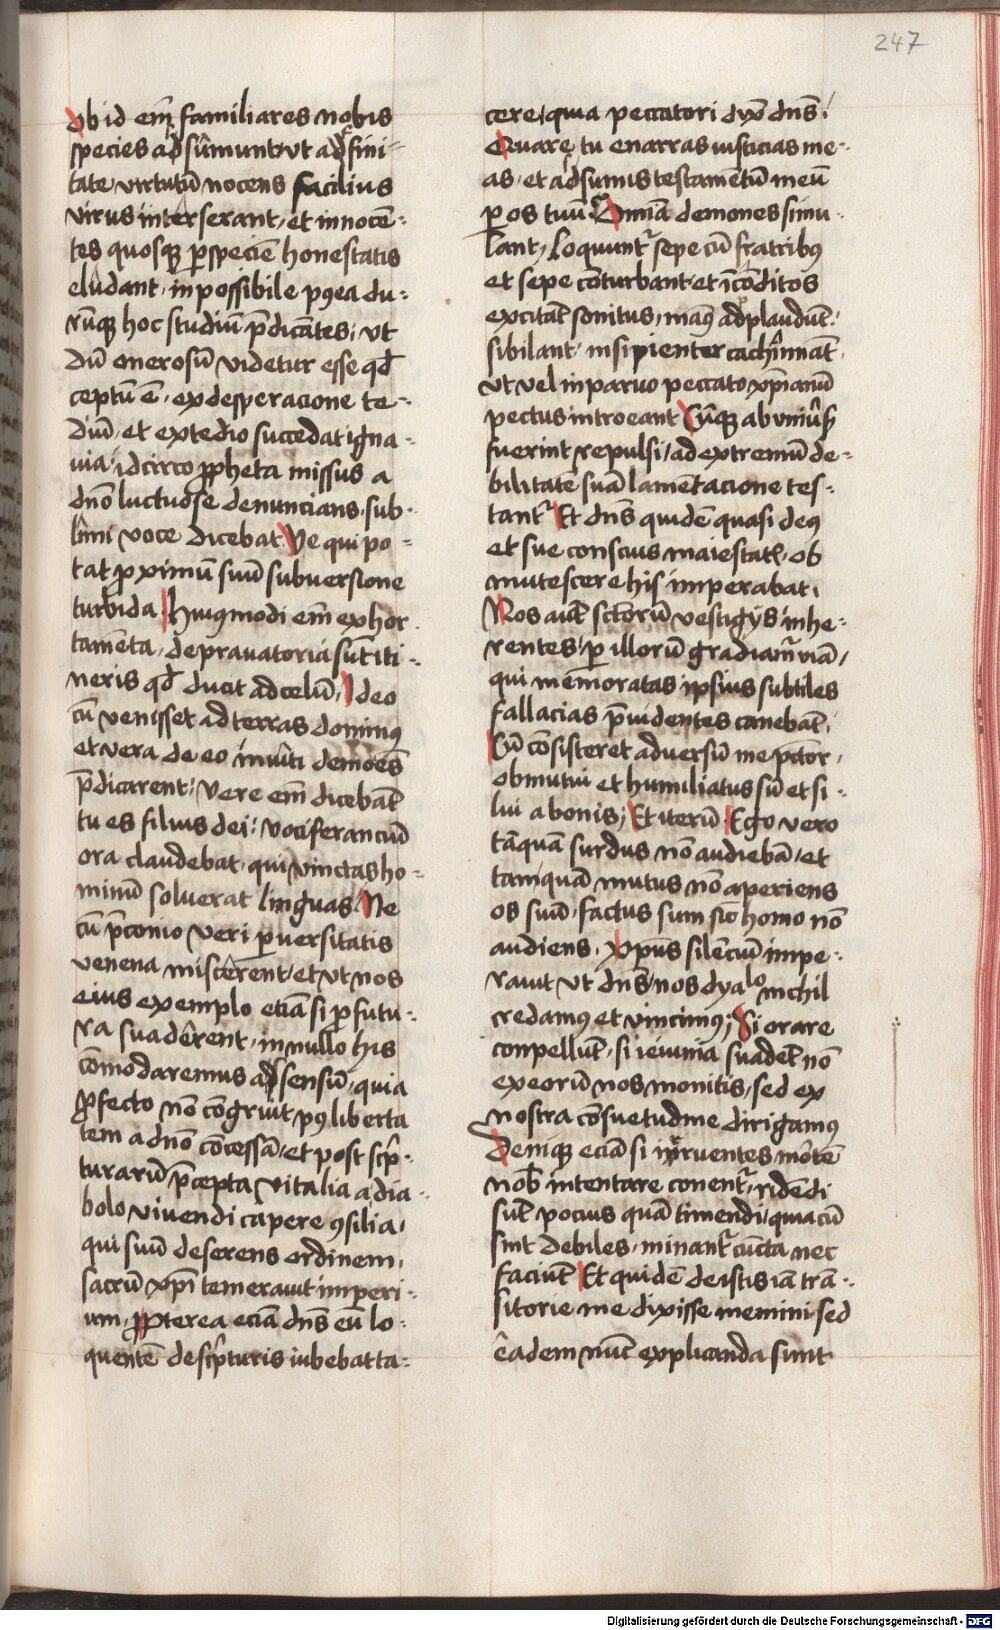 247
Ob id em̄ familiares nobis
species adsûmunt vt ad fini=
tate virtutū nocens facilius
virus interserant, et innocē=
tes quosq̨ p̱ speciē honestatis
eludant, inpossibile p9 ea du=
rūq̨ hoc studiū p̄dicātes, vt
dū onerosū videtur esse qd̄
ceptū ē, ex desperacione te=
diū, et ex tedio succedat igna=
uia, idcirco ꝓpheta missus a
dn̄o luctuose denuncians, sub=
lîmi voce dicebat. Ve qui po=
tat ꝓximū suū subuersione
turbida. Hui9modi em̄ exhor
tamēta, deprauatoria sūt iti=
neris qd̄ ducit ad celū, Ideo
cū venisset ad terras domin9
et vera de eo inuîti demoēs
p̄dicarent, vere em̄ dicebāt
tu es filius dei, vociferanciū
ora claudebat, qui vinctas ho=
minū soluerat linguas Ne
cū p̄conio veri p̱uersitatis
venena miscêrent, et vt nos
eius exemplo eciā si ꝓfutu=
ra suadêrent, in nullo his
cōmodaremus adsensū, quia
ꝓfecto nō cōgruit p9 liberta
tem a dn̄o cōcessā, et post sc̄p̄=
turarū p̄cepta vitalia a dia=
bolo viuendi capere 9silia,
qui suū deserens ordinem,
sacrū xp̄i temerauit imperi=
um, ꝓpterea eciā dn̄s eū lo=
quentē de sc̄pturis iubebat ta=
cere, quia peccatori dyx̄ dn̄s,
Quare tu enarras iusticias me=
as, et adsumis testamētū meū
p̱ os tuū. Omīa demones simu=
lant, Loquunt᷑ sepe cū fratrib9
et sepe cōturbant et īcōditos
excitāt sonitus, man9 adplaudūt,
sibilant, insipienter cachînnāt,
vt vel in paruo peccato xp̄ianū
pectus introeant Cūq̨ ab vnius̄
fuerint repulsi, ad extremū de=
bilitatē suā lamētacione tes=
tant᷑ Et dn̄s quidē quasi de9
et sue conscius maiestatꝭ, ob
mutescere his imperabat,
Nos aūt sc̄torū vestigijs inhe=
rentes, p̱ illorū gradiam᷑ viā,
qui memoratas ipsius subtiles
fallacias p̄uidentes canebāt,
Cū cōsisteret aduersū me pc̄tor,
obmutui et humiliatus sū et si=
lui a bonis; Et iterū Ego vero
tāquā surdus nō audiebā, et
tamquā mutus nō aperiens
os suū, factus sum sic̄ homo nō
audiens, xp̄us silēciū impe=
rauit vt dn̄s, nos dyalo nichil
credam9 et vincim9; Si orare
conpellūt, si ieiunia suadēt nō
ex eorū nos monitis, sed ex
nostra cōsuetudine dirigam9
Deniq̨ eciā si irruentes mortē
nob̄ intentare conent᷑, ridēdi
sūt pocius quā timendi, quia cū
sint debiles, minant᷑ cūcta nec
faciūt Et quidē de istis iā trā=
sitorie me dixisse memini, sed
êadem nūc explicanda sunt
Digitalisierung gefördert durch die Deutsche Forschungsgemeinschaft - DFG